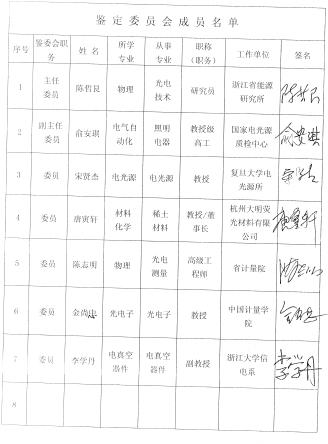 鉴定委员会成员名单
序号 鉴委会职务 姓名 所学专业 从事专业 职称(职务) 工作单位 签名
1 主任委员 陈哲艮 物理 光电技术 研究员 浙江省能源研究所 陈哲艮
2 副主任委员 俞安琪 电气自动化 照明电器 教授级高工 国家电光源质检中心 俞安琪
3 委员 宋贤杰 电光源 电光源 教授 复旦大学电光源所
4 委员 唐寅轩 材料化学 稀土材料 教授/董事长 杭州大明荧光材料有限公司
5 委员 陈志明 物理 光电测量 高级工程师 省计量院
6 委员 金尚忠 光电子 光电子 教授 中国计量学院
7 委员 李学丹 电真空器件 电真空器件 副教授 浙江大学信电系 李学丹
8